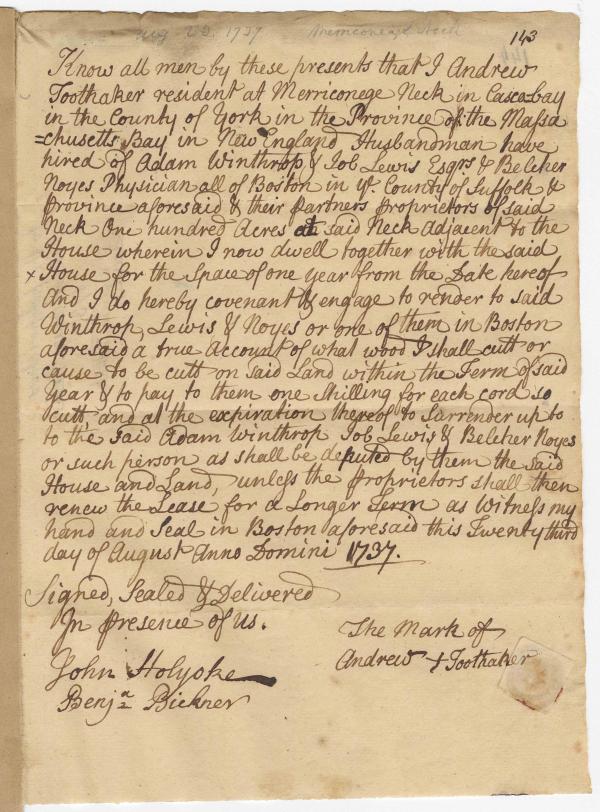 Aug 23, 1737 Merriconeag Neck
143
Know all men by these presents that I Andrew
Toothaker resident at Merriconege Neck in Casco=bay
in the County of York in the Province of the Massa
=chusetts Bay in New England Husbandman have
hired of Adam Winthrop & Job Lewis Esqrs & Belcher
Noyes Physician all of Boston in ye County of Suffolk &
Province aforesaid & their Partners Proprietors of said
Neck One hundred Acres at said Neck Adjacent to the
House wherein I now dwell together with the said
x House for the Space of one year from the Date hereof
And I do hereby covenant & engage to render to said
Winthrop, Lewis & Noyes or one of them in Boston
aforesaid a true Account of what wood I shall cutt or
cause to be cutt on said Land within the Term of said
Year & to pay to them one Shilling for each cord so
cutt, and at the expiration thereof to Surrender up to
to the said Adam Winthrop Job Lewis & Belcher Noyes
or such person as shall be deputed by them the said
House and Land, unless the Proprietors shall then
renew the Lease for a Longer Term as Witness my
hand and Seal in Boston aforesaid this Twenty third
day of August Anno Domini 1737.
Signed, Sealed & Delivered
In presence of Us.
The Mark of
Andrew + Toothaker
John Holyoke
Benja Bickner